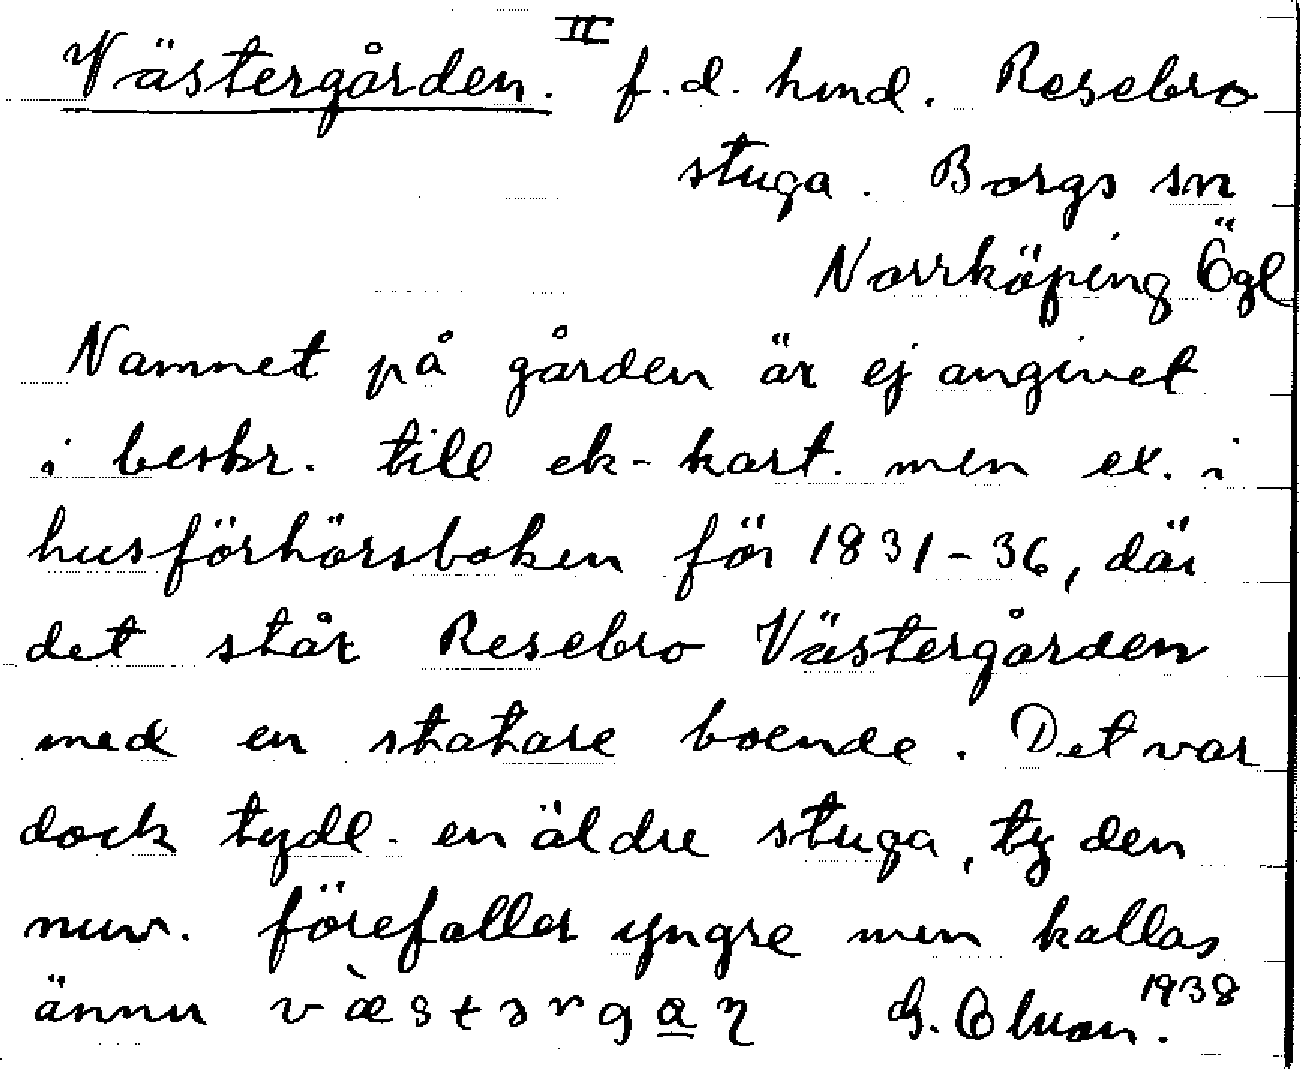 Västergården. II f.d. hmd. Resebro
stuga. Borgs sn
Norrköping Ögl
Namnet på gården är ej angivet
i beskr. till ek-kart. men ex. i
husförhörsboken för 1831-36, där
det står Resebro Västergården
med en statare boende. Det var
dock tydl. en äldre stuga, ty den
nuv. förefaller yngre men kallas
ännu 1938